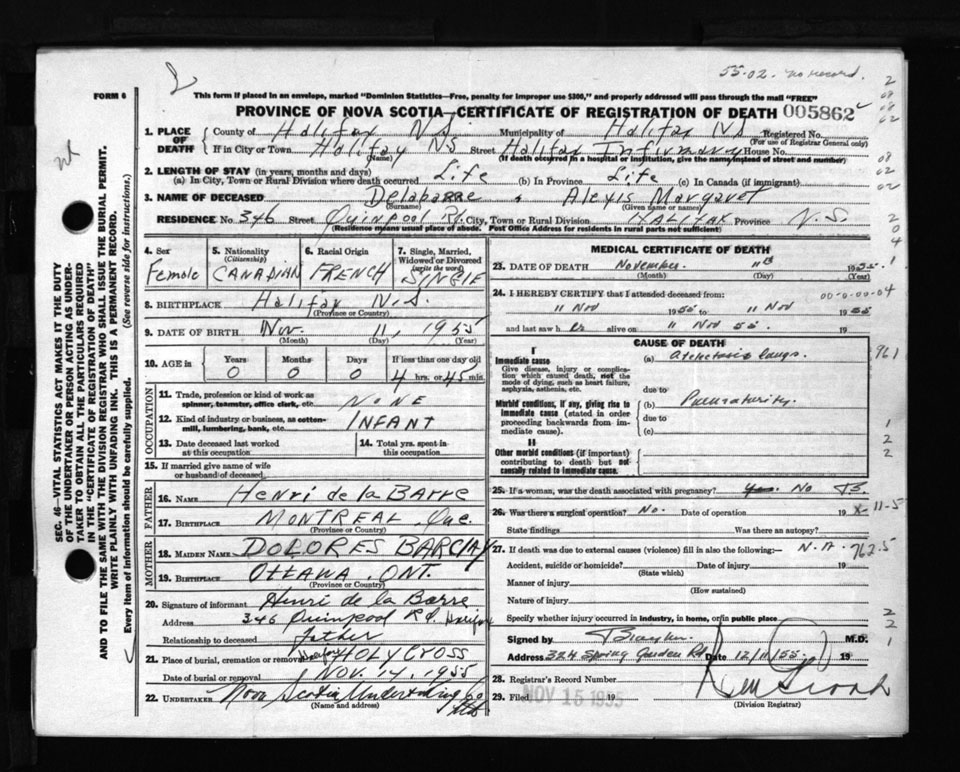 55-02. no record.
FORM 6
This form may be placed in an envelope, marked "Dominion Statistics—Free, penalty for improper use $300," and properly addressed will pass through the mail "FREE"
PROVINCE OF NOVA SCOTIA—CERTIFICATE OF REGISTRATION OF DEATH 005862
1. PLACE OF DEATH
County of Halifax N.S. Municipality of Halifax N.S. Registered No.
(For use of Registrar General only)
If in City or Town Halifax N.S. Street Halifax Infirmary House No.
(Name) (If death occurred in a hospital or institution, give the name instead of street and number)
2. LENGTH OF STAY (in years, months and days)
(a) In City, Town or Rural Division where death occurred Life (b) In Province Life (c) In Canada (if immigrant)
3. NAME OF DECEASED Delabarre, Alexis Margaret
(Surname) (Given name or names)
RESIDENCE No. 346 Street Quinpool Rd. City, Town or Rural Division HALIFAX Province N.S.
(Residence means usual place of abode. Post Office Address for residents in rural parts not sufficient)
4. Sex Female
5. Nationality (Citizenship) CANADIAN
6. Racial Origin FRENCH
7. Single, Married, Widowed or Divorced (write the word) SINGLE
8. BIRTHPLACE Halifax N.S.
(Province or Country)
9. DATE OF BIRTH Nov. 11, 1955
(Month) (Day) (Year)
10. AGE in Years Months Days If less than one day old
0 0 0 4 hrs. or 45 min.
OCCUPATION
11. Trade, profession or kind of work as spinner, teamster, office clerk, etc. NONE
12. Kind of industry or business, as cotton-mill, lumbering, bank, etc. INFANT
13. Date deceased last worked at this occupation
14. Total yrs. spent in this occupation
15. If married give name of wife or husband of deceased
FATHER
16. NAME Henri de la Barre
17. BIRTHPLACE MONTREAL, Que.
(Province or Country)
MOTHER
18. MAIDEN NAME DOLORES BARCLAY
19. BIRTHPLACE OTTAWA, ONT.
(Province or Country)
20. Signature of informant Henri de la Barre
Address 346 Quinpool Rd. Halifax
Relationship to deceased father
21. Place of burial, cremation or removal Halifax HOLY CROSS
Date of burial or removal NOV. 14, 1955
22. UNDERTAKER Nova Scotia Undertaking Co
(Name and address)
MEDICAL CERTIFICATE OF DEATH
23. DATE OF DEATH November 11 1955
(Month) (Day) (Year)
24. I HEREBY CERTIFY that I attended deceased from:
11 Nov 1955 to 11 Nov 1955
and last saw her alive on 11 Nov 55. 19
CAUSE OF DEATH
I
Immediate cause
Give disease, injury or complication which caused death, not the mode of dying, such as heart failure, asphyxia, asthenia, etc.
(a) Atelectasis lungs.
due to
Morbid conditions, if any, giving rise to immediate cause (stated in order proceeding backwards from immediate cause).
(b) Prematurity.
due to
(c)
II
Other morbid conditions (if important) contributing to death but not causally related to immediate cause.
25. If a woman, was the death associated with pregnancy? Yes. No
26. Was there a surgical operation? No. Date of operation 19
State findings Was there an autopsy?
27. If death was due to external causes (violence) fill in also the following:— N.A. 762.5
Accident, suicide or homicide? Date of injury 19
(State which)
Manner of injury
(How sustained)
Nature of injury
Specify whether injury occurred in industry, in home, or in public place
Signed by M.D.
Address 324 Spring Garden Rd Date 12/11/55. 19
28. Registrar's Record Number
29. Filed NOV 15 1955 19
(Division Registrar)
SEC. 46—VITAL STATISTICS ACT MAKES IT THE DUTY
OF THE UNDERTAKER OR PERSON ACTING AS UNDERTAKER TO OBTAIN ALL THE PARTICULARS REQUIRED
IN THE "CERTIFICATE OF REGISTRATION OF DEATH"
AND TO FILE THE SAME WITH THE DIVISION REGISTRAR WHO SHALL ISSUE THE BURIAL PERMIT.
WRITE PLAINLY WITH UNFADING INK. THIS IS A PERMANENT RECORD.
Every item of information should be carefully supplied. (See reverse side for instructions.)